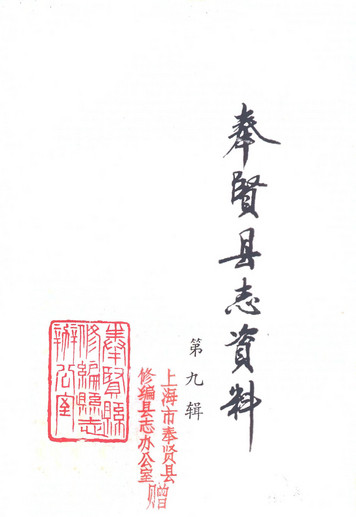 奉贤县志资料
第九辑
上海市奉贤县
修编县志办公室
赠
奉賢縣
修編縣志
辦公室